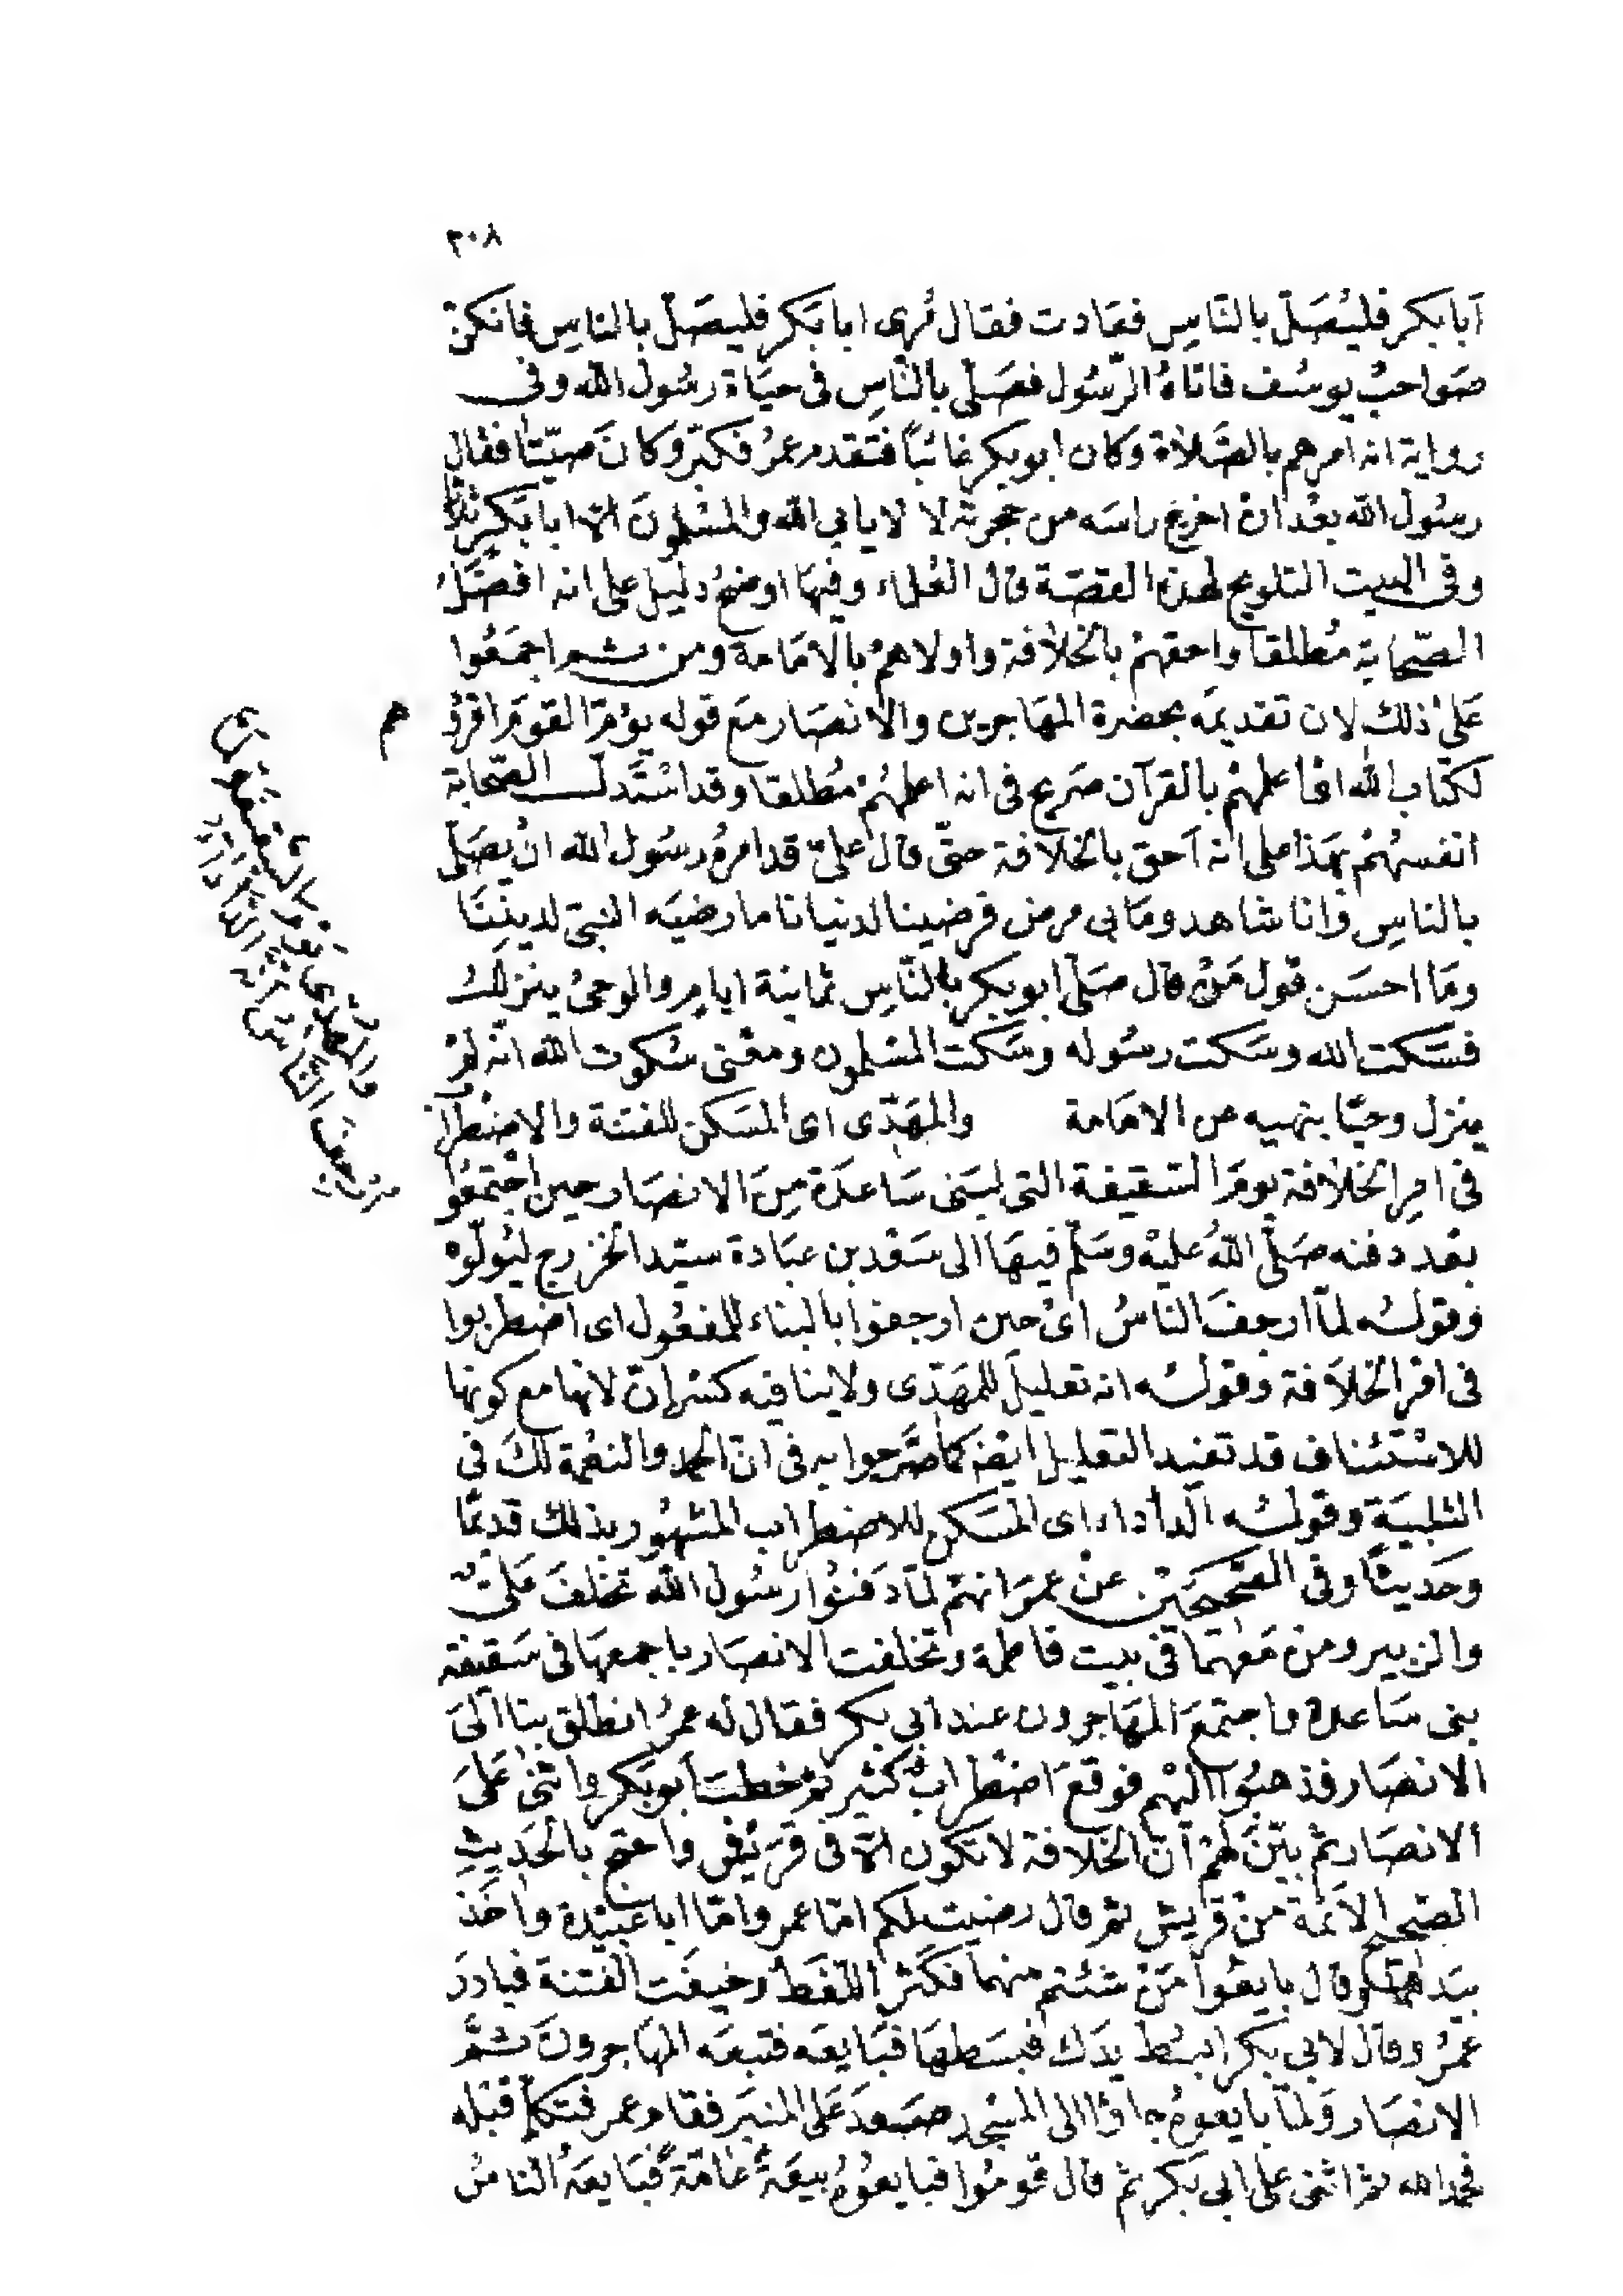 ٣٠٨
أبا بكر فليُصَلّ بالنّاسِ فعَادت فقال مُرِى ابا بَكر فليصَلّ بالناسِ فانكنّ
صَواحبُ يوسُف فاتاهُ الرّسُول فصَلّى بالنّاسِ فى حيَاة رسُول الله وفى
رواية انه امرهم بالصَّلاة وكان ابوبكر غائباً فتقدم عمرُ فكبّر وكانَ صيّتًا فقال
رسُول الله بعْد انْ اخرج راسَه من حجرته لا لا يابى الله والمسْلمونَ الّا ابا بَكر ثلاثا
وفى البيت التلويح لهذه القصّة قال العُلماء وفيهَا اوضحُ دليل على انه افضَلُ
الصّحابة مُطلقا واحقهمْ بالخلافة واولاهمْ بالامَامة ومن ثم اجمَعُوا
عَلىٰ ذلك لان تقديمَه بحضْرة المهَاجرين والانصَار مَع قوله يؤمّ القومَ اقرؤهم
لكتاب الله اى اعلمهمْ بالقرآن صَريح فى انه اعلمهُمْ مُطلقا وقد اسْتَدلّ الصّحابة
انفسهُمْ بهَذا على انه أحق بالخلافة حتّى قال علىّ قد امرهُ رسُول الله انْ يصَلّى
بالناسِ وانا شاهد ومَا بى مرض فرضينا لدنيانا ما رضيَه النبىّ لديننَا
ومَا احسَن قول مَنْ قال صَلّى ابوبكر بالنّاس ثمانية ايامٍ والوحىُ ينزل
فسَكت الله وسَكت رسُوله وسَكت المسْلمون ومعْنى سُكوت الله انّه لمْ
ينزل وحيًا ينهيه عن الامَامة والمهَدّى اى المسَكن للفتنة والاضْطراب
فى امِر الخلافة يومَ السّقيفة التى لبَنى سَاعدَة مِنَ الانصَار حين اجْتمعُوا
بعْد دفنه صَلّى اللهُ عليْه وسَلّم فيهَا الى سَعْد بن عبَادة سيّد الخزرج ليُولّوه
وقولهُ لمّا ارجفَ الناسُ اىْ حين ارجفوا بالبناء للمفعُول اى اضطربوا
فى امْر الخلَافة وقولهُ انه تعليل للمهَدّى ولا ينافيه كسْر إنّ لانها مع كونها
للاسْتئناف قد تفيد التعليل ايضًا كما صَرّحوا به فى انّ الحمد والنعْمة لكَ فى
التلبيَة وقولهُ الدأداء اى المسَكن للاضطراب المشهُور بذلك قديمًا
وحَديثًا وفى الصّحيحَيْن عنْ عمرَ انهمْ لمّا دَفنوُا رسُول الله تخلفَ عَلىّ
والزبير ومنْ مَعهمَا فى بيت فاطمة وتخلفت الانصَار باجمعهَا فى سَقيفة
بنى سَاعدة واجتمَعَ المهَاجرون عند ابى بكر فقال له عمرُ انطلق بنا الىَ
الانصَار فذهبُوا اليْهم فوقعَ اضْطرابٌ كثير ثمّ خطبَ أبوبَكر واثنىٰ عَلىَ
الانصَار ثمّ بيّنَ لهمْ انّ الخلافة لا تكون الّا فى قرَيْش واحتج بالحَديثِ
الصّحيح الائمّة منْ قُريش ثم قال رضيت لكم امّا عمر وامّا ابا عُبيْدة واخَذ
بيَدهمَا وقال بايعُوا مَنْ شئتم منهمَا فكَثر اللّغَط وخيفَت الفتنة فبادرَ
عمرُ وقال لابى بَكر ابسُط يدَك فبسَطهَا فبَايعَه فتبعَه المهَاجرونَ ثمّ
الانصَار وَلمّا بايعوهُ جاؤا الى المسْجد صعدَ عَلى المنبَر فقام عمر فتكلم قبْله
فحمد الله ثم اثنى على ابى بَكر ثم قال قومُوا فبايعُوهُ بيعَةً عَامّةً فبَايعَهُ الناسُ
م
والمهَدّى يَوْمَ السَّقيفة لمّا
أرجف النّاسُ إنّه الدّأداء